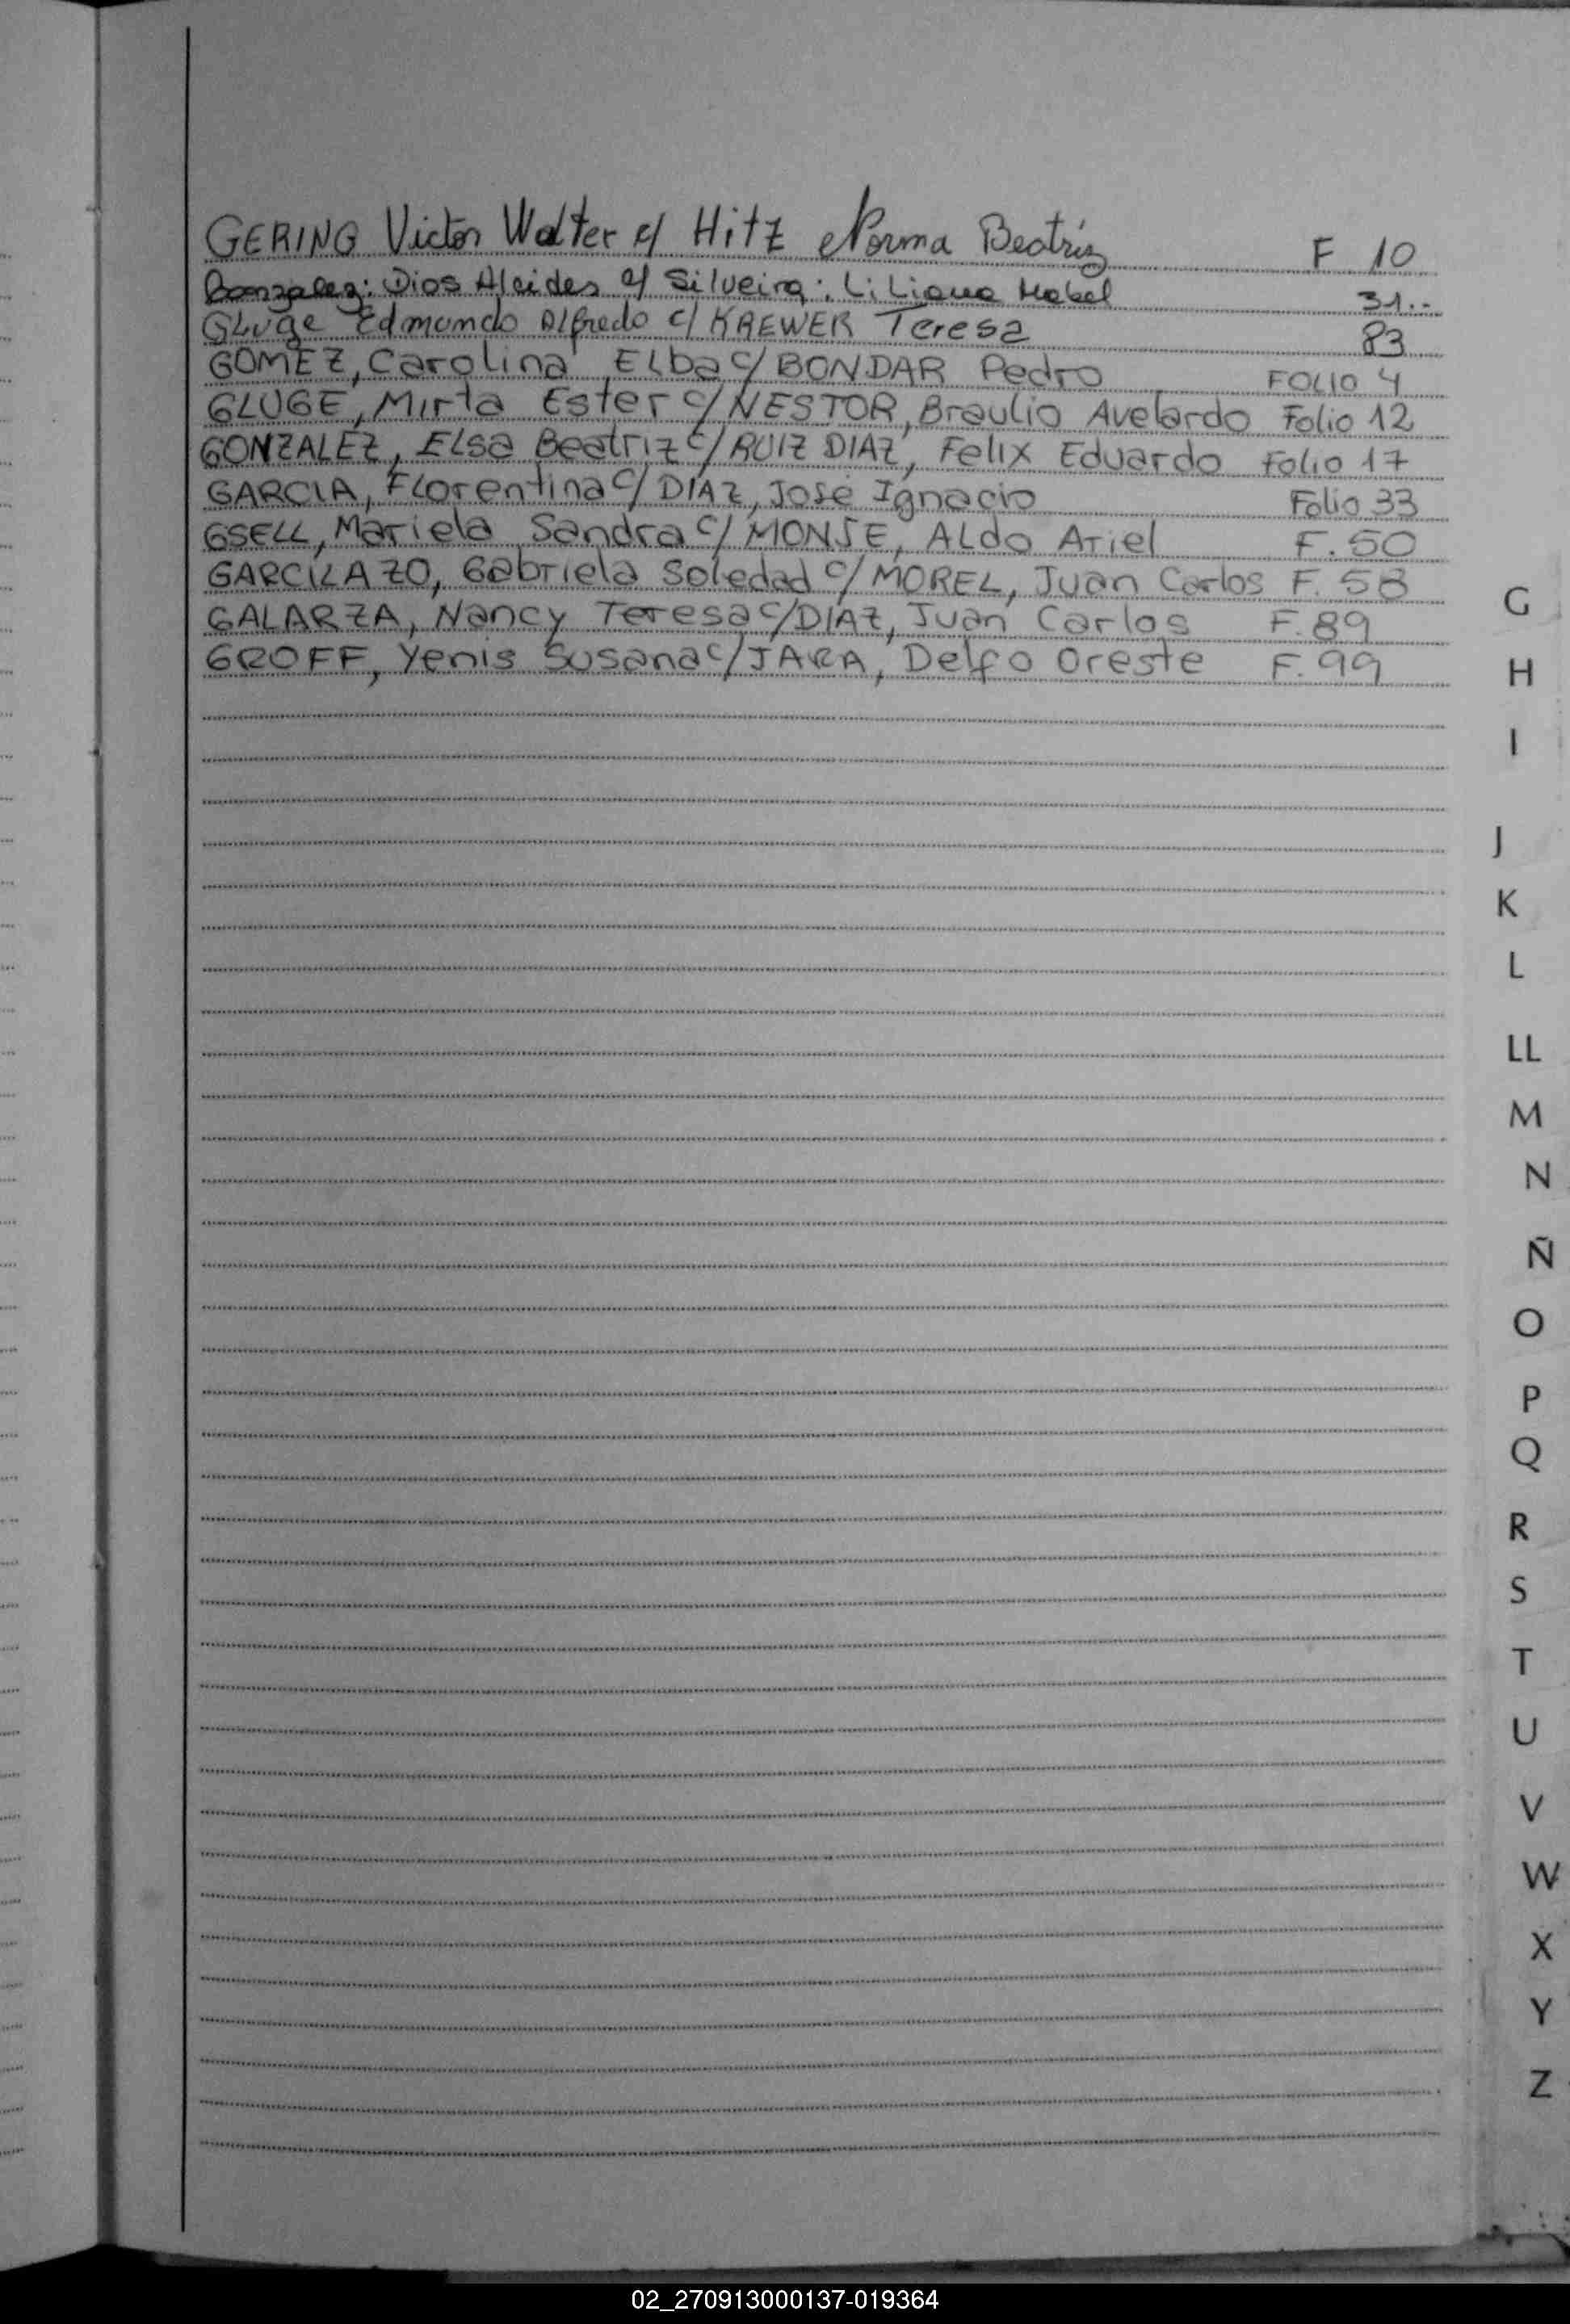 GERING Victor Walter c/ Hitz Norma Beatriz F 10
Gonzalez: Dios Alcides c/ Silveira: Liliana Mabel 31..
GLuge Edmundo Alfredo c/ KREWER Teresa 83
GOMEZ, Carolina ELba c/ BONDAR Pedro FOLIO 4
GLUGE, Mirta Ester c/ NESTOR, Braulio Avelardo Folio 12
GONZALEZ, ELsa Beatriz c/ RUIZ DIAZ, Felix Eduardo Folio 17
GARCIA, FLorentina c/ DIAZ, José Ignacio Folio 33
GSELL, Mariela Sandra c/ MONJE, ALdo Ariel F. 50
GARCILAZO, Gabriela Soledad c/ MOREL, Juan Carlos F. 58
GALARZA, Nancy Teresa c/ DIAZ, Juan Carlos F. 89
GROFF, Yenis Susana c/ JARA, Delfo Oreste F. 99
G
H
I
J
K
L
LL
M
N
Ñ
O
P
Q
R
S
T
U
V
W
X
Y
Z
02_270913000137-019364